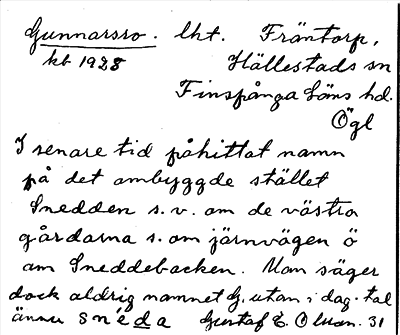 Gunnarsro. lht. Fräntorp,
kb 1928 Hällestads sn
Finspånga läns hd.
Ögl
I senare tid påhittat namn
på det ombyggde stället
Snedden s.v. om de västra
gårdarna s. om järnvägen ö
om Sneddebacken. Man säger
dock aldrig namnet G. utan i dag. tal
ännu snéda Gustaf E. Olsson. 31